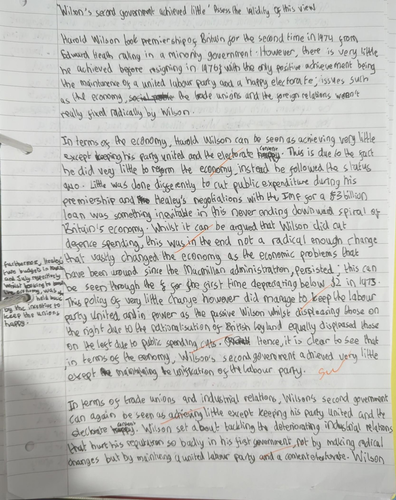 'Wilson's second government achieved little' Assess the validity of this view
Harold Wilson took premiership of Britain for the second time in 1974 from
Edward Heath ruling in a minority government. However, there is very little
he achieved before resigning in 1976, with the only positive achievement being
the maintenance of a united labour party and a happy electorate; issues such
as the economy, the trade unions and the foreign relations weren't
really fixed radically by Wilson.
In terms of the economy, Harold Wilson can be seen as achieving very little
except keeping his party united and the electorate content. This is due to the fact
he did very little to reform the economy, instead he followed the status
quo. Little was done differently to cut public expenditure during his
premiership and Healey's negotiations with the IMF for a £3 billion
loan was something inevitable in this never ending downward spiral of
Britain's economy. Whilst it can be argued that Wilson did cut
defence spending, this was in the end not a radical enough change
that vastly changed the economy as the economic problems that
have been around since the Macmillan administration, persisted; this can
be seen through the £ for the first time depreciating below $2 in 1975.
This policy of very little change however did manage to keep the labour
party united and in power as the passive Wilson whilst displeasing those on
the right due to the nationalisation of British Leyland equally displeased those
on the left due to public spending cuts. Hence, it is clear to see that
in terms of the economy, Wilson's second government achieved very little
except maintaining the unification of the labour party.
Furthermore, Healey's
budget in March
and July
whilst
held back
by the incentive to
keep the unions
happy.
In terms of trade unions and industrial relations, Wilson's second government
can again be seen as achieving little except keeping his party united and the
electorate content. Wilson set about tackling the deteriorating industrial relations
that hurt his reputation so badly in his first government, not by making radical
changes but by maintaining a united labour party and a content electorate. Wilson